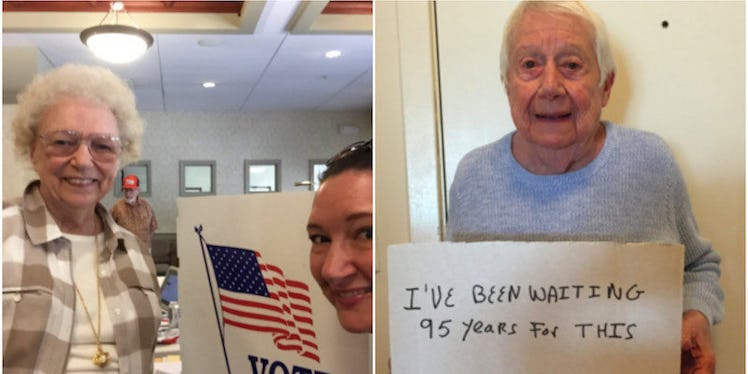 VOTE
I'VE BEEN WAITING
95 years For THIS